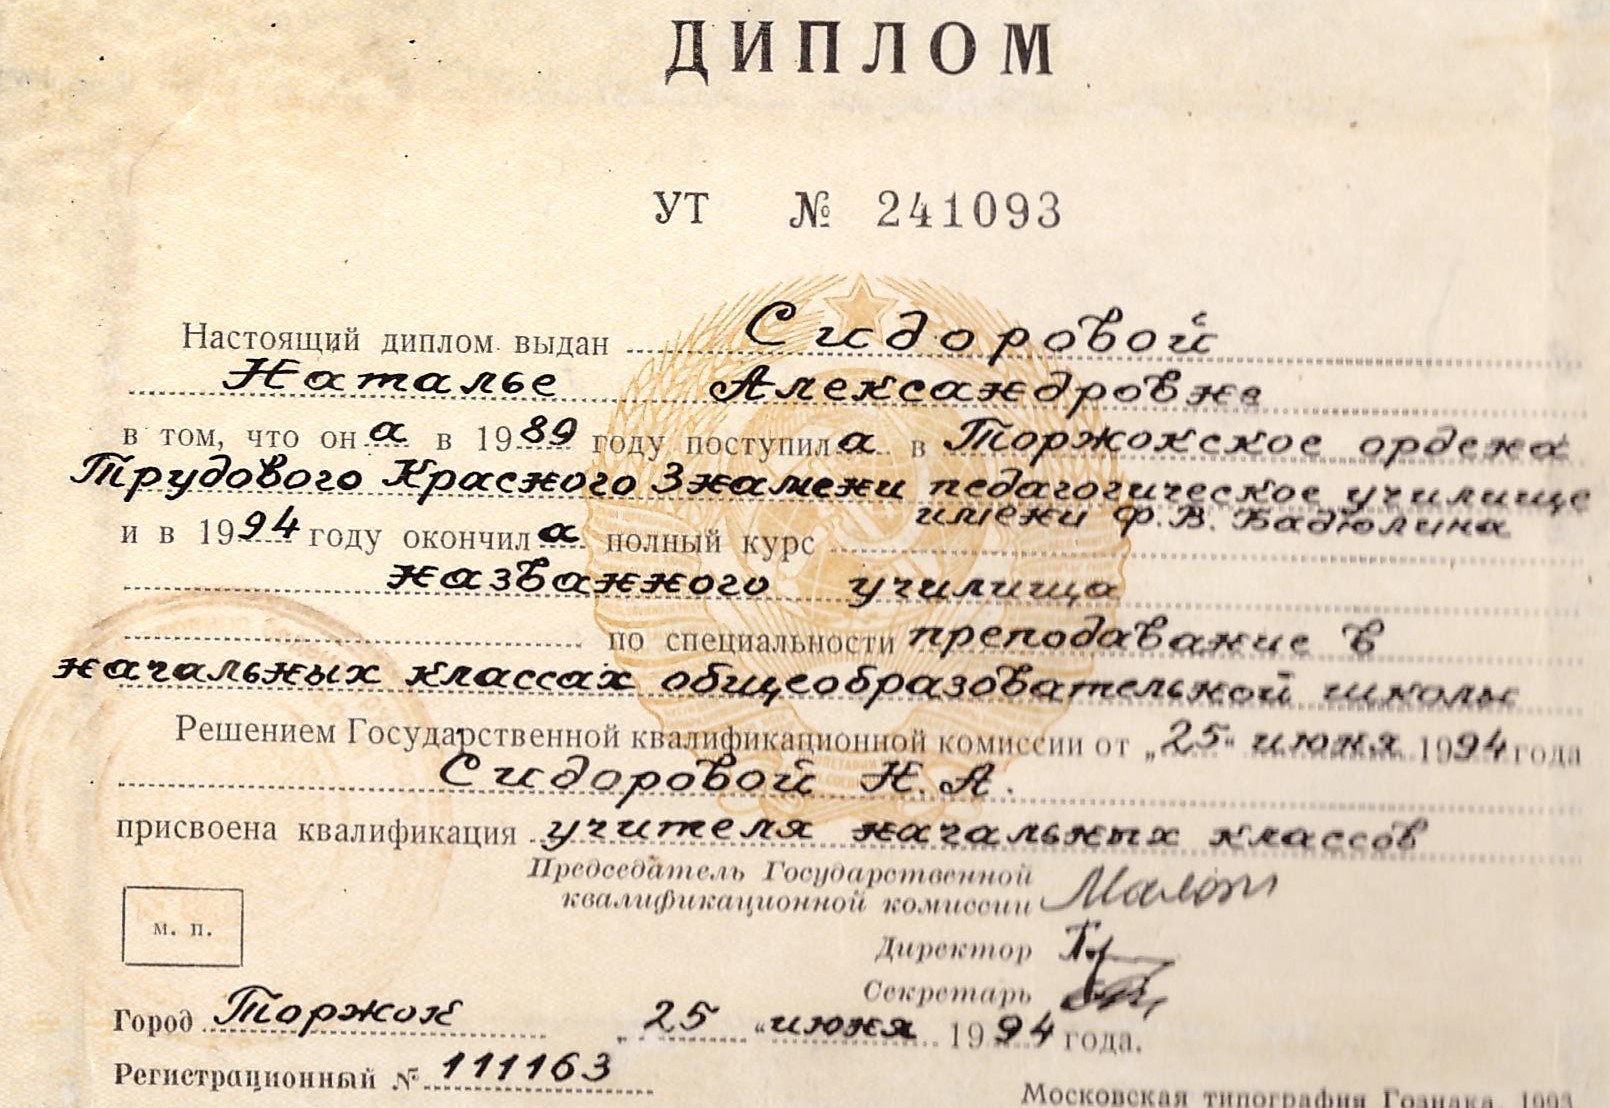 ДИПЛОМ
УТ № 241093
Настоящий диплом выдан Сидоровой
Наталье Александровне
в том, что она в 1989 году поступила в Торжокское ордена
Трудового Красного Знамени педагогическое училище
имени Ф.В. Бадюлина
и в 1994 году окончила полный курс
названного училища
по специальности преподавание в
начальных классах общеобразовательной школы
Решением Государственной квалификационной комиссии от „25" июня 1994 года
Сидоровой Н.А.
присвоена квалификация учителя начальных классов
Председатель Государственной
квалификационной комиссии
Директор
м. п.
Секретарь
Город Торжок „25" июня 1994 года.
Регистрационный № 111163
Московская типография Гознака. 1993